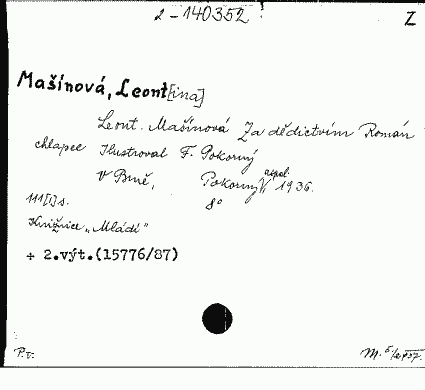 2-140352 Z
Mašínová, Leont[ina]
Leont. Mašínová Za dědictvím Román
chlapce Ilustroval F. Pokorný
V Brně, Pokorný 1936.
111[1]s. 8°
Knižnice „Mládí"
+ 2.výt.(15776/87)
P.v.